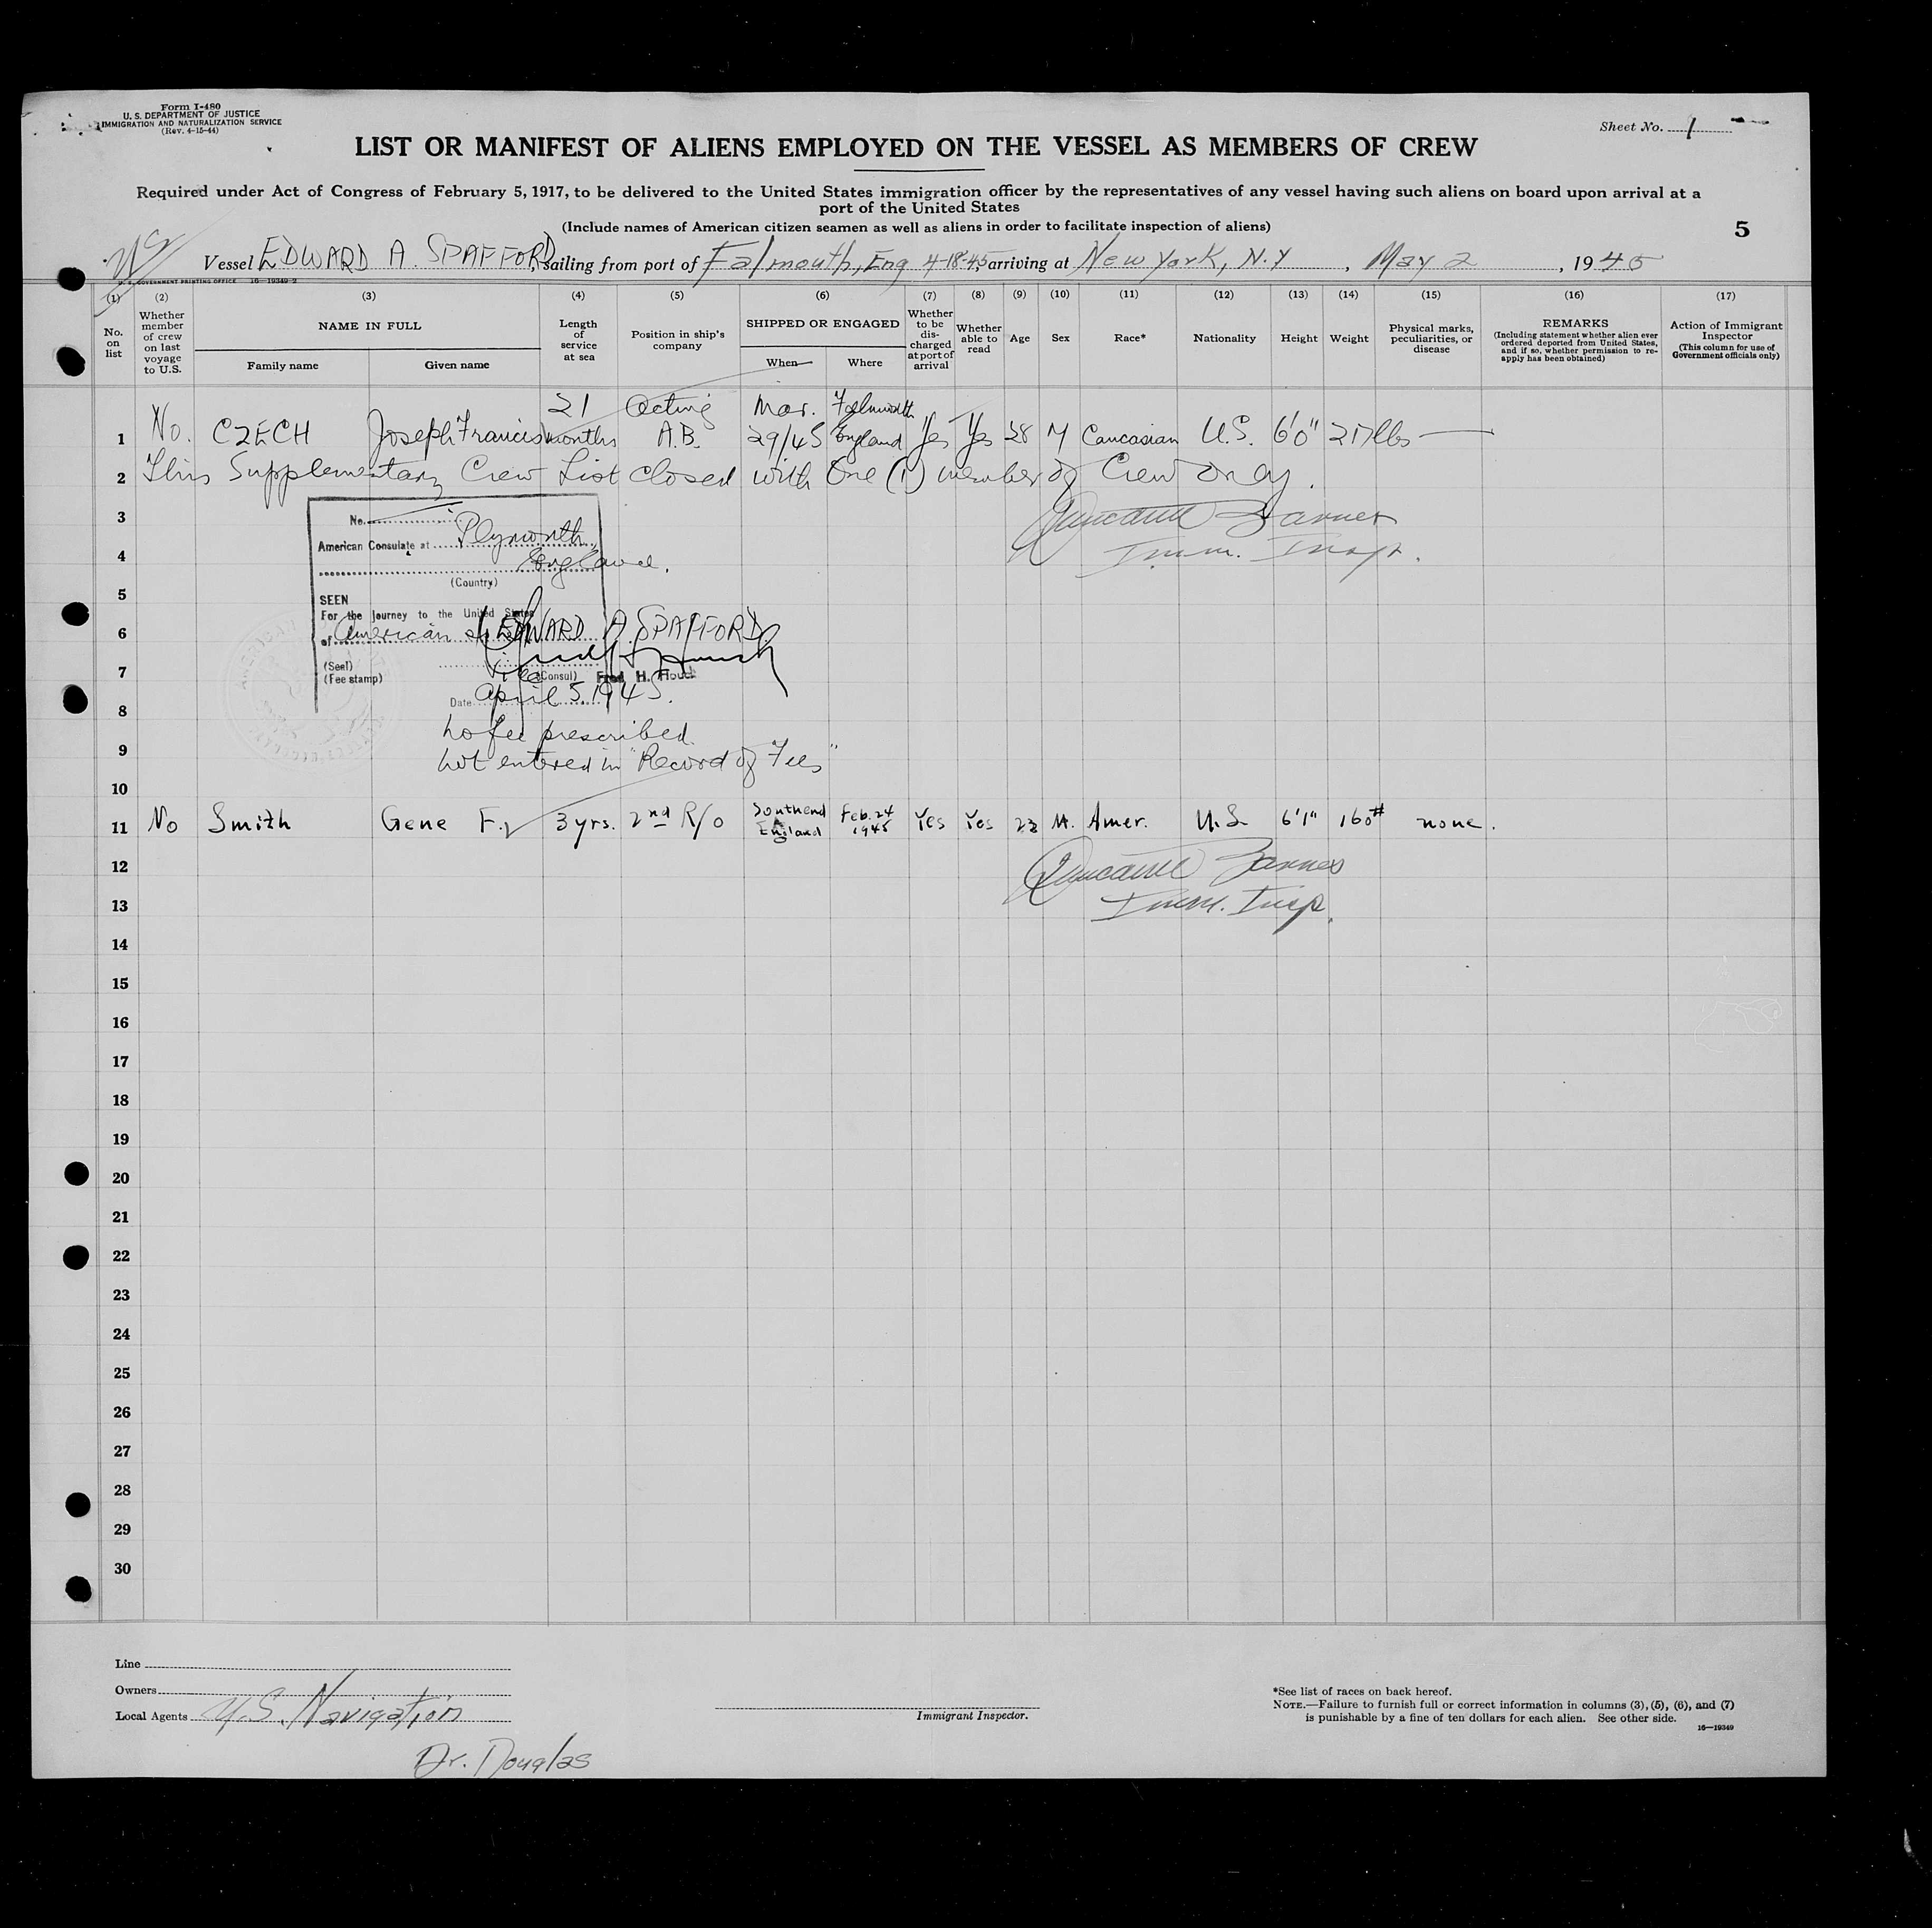 Form I-480
U. S. DEPARTMENT OF JUSTICE
IMMIGRATION AND NATURALIZATION SERVICE
(Rev. 4-15-44)
Sheet No. 1
LIST OR MANIFEST OF ALIENS EMPLOYED ON THE VESSEL AS MEMBERS OF CREW
Required under Act of Congress of February 5, 1917, to be delivered to the United States immigration officer by the representatives of any vessel having such aliens on board upon arrival at a
port of the United States
(Include names of American citizen seamen as well as aliens in order to facilitate inspection of aliens)
5
Vessel EDWARD A. SPAFFORD, sailing from port of Falmouth, Eng 4-18-45, arriving at New York, N.Y, May 2, 1945
U. S. GOVERNMENT PRINTING OFFICE 16-19349-2
(1) (2) (3) (4) (5) (6) (7) (8) (9) (10) (11) (12) (13) (14) (15) (16) (17)
No. on list
Whether member of crew on last voyage to U.S.
NAME IN FULL
Family name
Given name
Length of service at sea
Position in ship's company
SHIPPED OR ENGAGED
When
Where
Whether to be discharged at port of arrival
Whether able to read
Age
Sex
Race*
Nationality
Height
Weight
Physical marks, peculiarities, or disease
REMARKS
(Including statement whether alien ever ordered deported from United States, and if so, whether permission to reapply has been obtained)
Action of Immigrant Inspector
(This column for use of Government officials only)
21 Acting Mar. Falmouth
1 No. CZECH Joseph Francis months A.B. 29/45 England Yes Yes 28 M Caucasian U.S. 6'0" 217lbs —
2 This Supplementary Crew List closed with One (1) member of Crew only.
3
Imm. Insp.
4
5
6
7
8
9
10
No.
American Consulate at Plymouth
England.
(Country)
SEEN
For the journey to the United States
of American EDWARD A. SPAFFORD
(Seal)
(Fee stamp)
Vice (Consul) Fred H. Houck
Date April 5, 1945.
No fee prescribed.
Not entered in "Record of Fees"
11 No Smith Gene F. 3 yrs. 2nd R/O Southend England Feb. 24 1945 Yes Yes 23 M. Amer. U.S. 6'1" 160# none.
12
13
Imm. Insp.
14
15
16
17
18
19
20
21
22
23
24
25
26
27
28
29
30
Line
Owners
Local Agents U.S. Navigation
Dr. Douglas
Immigrant Inspector.
*See list of races on back hereof.
NOTE.—Failure to furnish full or correct information in columns (3), (5), (6), and (7)
is punishable by a fine of ten dollars for each alien. See other side.
16—19349